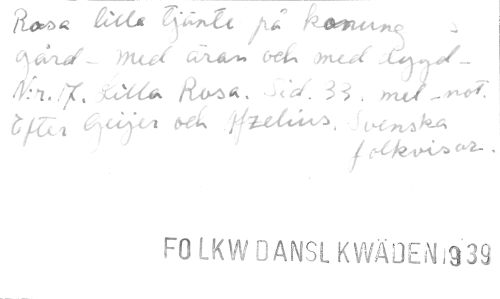 Rosa lilla tjänte på konung s
gård – med äran och med dygd –
N:r. 17. Lilla Rosa. Sid. 33. mel-not.
Efter Geijer och Afzelius. Svenska
folkvisor.
FOLKW DANSL KWÄDEN 1939